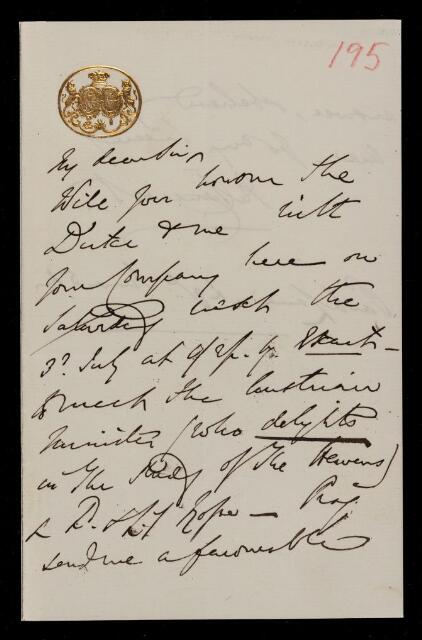 195
My dear Sir
Will you honour the
Duke & me with
your Company here on
Saturday week the
3d. July at
to meet the Austrian
Minister (who delights
in the Study of the Heavens)
& Pray
send me a favourable